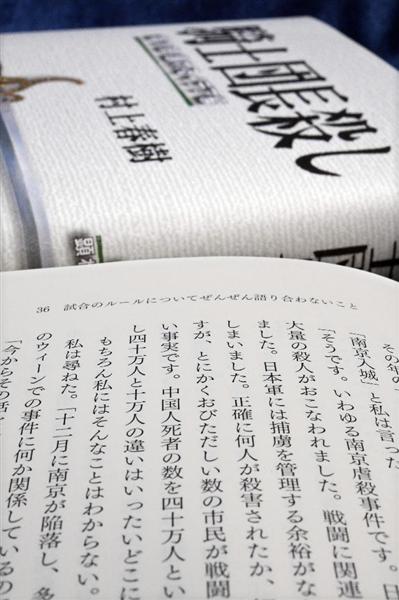 騎士団長殺し
村上春樹
顕
士団
36 試合のルールについてぜんぜん語り合わないこと
その年の
「南京入城」と私は言った
「そうです。いわゆる南京虐殺事件です。日
大量の殺人がおこなわれました。戦闘に関連
ました。日本軍には捕虜を管理する余裕がな
しまいました。正確に何人が殺害されたか、
すが、とにかくおびただしい数の市民が戦闘
い事実です。中国人死者の数を四十万人とい
し四十万人と十万人の違いはいったいどこに
もちろん私にはそんなことはわからない。
私は尋ねた。「十二月に南京が陥落し、多
のウィーンでの事件に何か関係しているの
「今からその話